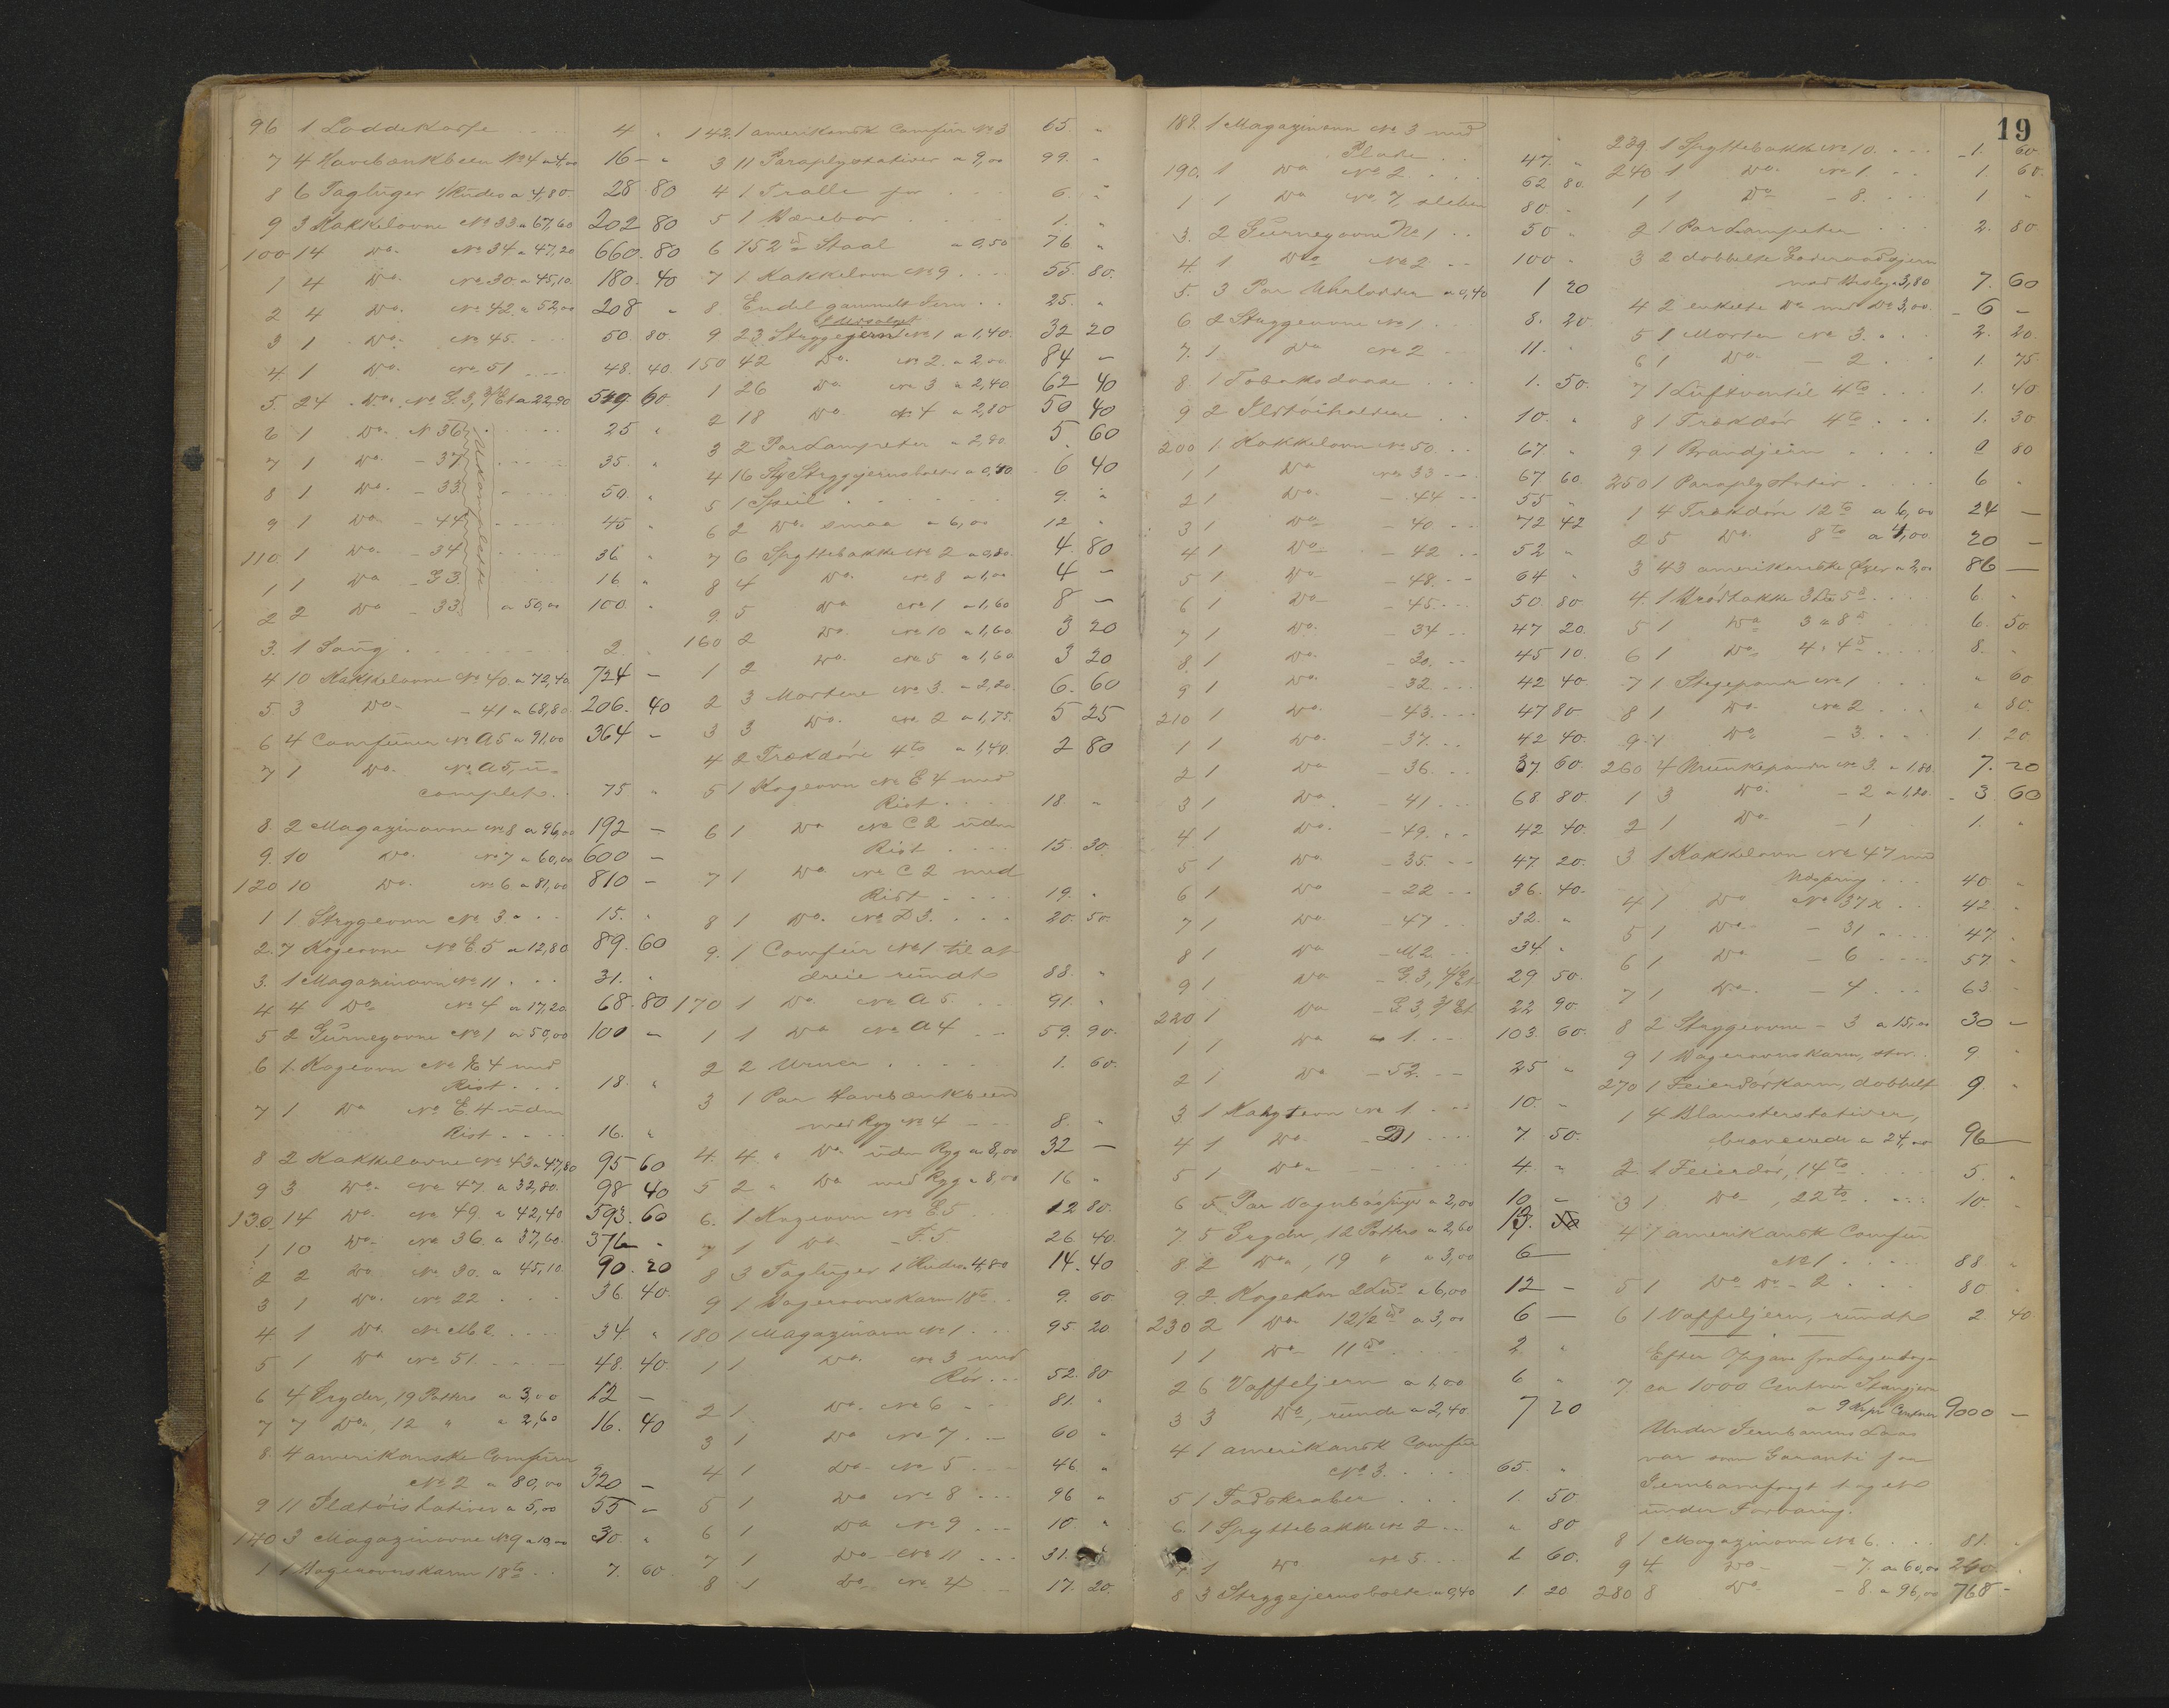 96 1 Loddekasse 4 "
7 4 Havebænkbeen No 4 a 4,00 16 - "
8 6 Tagluger 4 Ruders a 4,80 28 80
9 3 Kakkelovne No 33 a 67,60 202 80
100 14 Do. No 34 a 47,20 660. 80
1 4 Do. No 30. a 45,10. 180. 40
2 4 Do. No 42. a 52,00 208 "
3 1 Do. No 45. 50. 80.
4 1 Do. No 51 48. 40.
5. 24 Do. No G. 3, a 22,90 549 60
6 1 Do. N 36 25 "
7 1 Do. - 37 35. "
8 1 Do. - 33. 50. "
9 1 Do. - 44 45 "
110. 1 Do. - 34 36 "
1 1 Do - G 3. 16 "
2 2 Do - 33. a 50,00 100. "
Ukomplette
3. 1 Saug 2. "
4 10 Kakkelovne No 40. a 72,40 724 -
5 3 Do. - 41 a 68,80. 206. 40
6 4 Comfurer No A5 a 91,00 364 -
7 1 Do. No A5, u-
complet. 75 "
8. 2 Magazinovne No 8 a 96,00 192 -
9. 10 Do. No 7 a 60,00 600 -
120 10 Do. No 6 a 81,00 810 -
1 1 Strygeovn No 3 15. "
2. 7 Kogeovne No E. 5 a 12,80 89. 60
3. 1 Magazinovn No 11 31. "
4 4 Do. No 4 a 17,20 68. 80
5 2 Gurneyovne No 1 a 50,00 100 -
6 1. Kogeovn No E 4 med
Rist 18. "
7 1 Do No E. 4 uden
Rist 16. "
8 2 Kakkelovne No 43 a 47,80 95 60
9 3 Do. No 47 a 32,80. 98 40
130 14 Do. No 49 a 42,40 593. 60
1 10 Do. No 36. a 37,60. 376 -
2 2 Do No 30. a 45,10. 90. 20
3 1 Do. No 22 36. 40.
4. 1 Do. No M 2 34 "
5 1 Do No 51 48. 40
6 4 Gryder, 19 Potters a 3,00 12 -
7 7 Do., 12 " a 2,60 16. 40
8. 4 amerikanske Comfurer
No 2 a 80,00 320 -
9 11 Ildtöistativer a 5,00 55 -
140 3 Magazinovne No 9 a 10,00 30. "
1 1 Bagerovnskarm 18to 7. 60
142. 1 amerikansk Comfur No 3 65. "
3 11 Paraplystativer a 9,00 99. "
4 1 Tralle 6. "
5 1 Bærebør 1. "
6 152 Staal a 0,50 76 "
7 1. Kakkelovn No 9. 55. 80.
8. Endel gammelt Jern 25. "
9 23 Strygejern No 1 a 1,40. 32 20
150 42 Do. No 2. a 2,00 84 -
1 26 Do No 3 a 2,40 62 40
2 18 Do No 4 a 2,80 50 40
3 2 Par Lampetter a 2,80. 5. 60
4 16 Strygejernsbolter a 0,40. 6 40
5 1 Speil 9. "
6 2 Do. smaa a 6,00 12 "
7 6 Spyttebakke No 2 a 0,80. 4. 80
8 4 Do. No 8 a 1,00 4 -
9. 5 Do No 1 a 1,60 8 -
160 2 Do. No 10 a 1,60. 3 20
1 2 Do. No 5 a 1,60. 3 20
2 3 Mortere No 3. a 2,20. 6. 60
3 3 Do. No 2 a 1,75. 5 25
4 2 Trækdöre 4to a 1,40. 2 80
5 1 Kogeovn No E 4 med
Rist 18. "
6 1 Do No C 2 uden
Rist 15. 30.
7 1 Do No C 2 med
Rist 19. "
8 1 Do. No D 3. 20. 50.
9. 1 Comfur No 1 til at
dreie rundt 88. "
170 1 Do No A 5. 91. "
1 1 Do No A 4 59. 90.
2 2 Urner 1. 60.
3 1 Par Havebænkbeen
med Ryg No 4 8. "
4. 4. " Do uden Ryg a 8,00 32 -
5 2 " Do med Ryg a 8,00 16 "
6. 1 Kogeovn No E. 5 12 80.
7 1 Do - F. 5 26 40.
8 3 Tagluger 1 Rudes 4,80 14. 40
9 1 Bagerovnskarm 18to 9. 60.
180 1 Magazinovn No 1. 95 20
1 1 Do. No 3 med
Rör 52. 80
2 1 Do. No 6 81. "
3 1 Do No 7. 60 "
4 1 Do. No 5 46. "
5 1 Do No 8 96 "
6 1 Do No 9 10 "
7 1 Do. No 11 31.
8 1 Do. No 4 17. 20.
19
189. 1 Magazinovn No 3 med
Plade 47. "
190. 1 Do No 2 62 80.
1 1 Do No 7, sleben 80 "
3. 2 Gurneyovne No 1 50 "
4. 1 Do No 2 100 "
5. 3 Par Uhrlodder a 0,40 1 20
6 2 Strygeovne No 1 8. 20.
7. 1 Do No 2 11. "
8 1 Tobaksdaase 1. 50.
9 2 Ildtöiholdere 10. "
200 1. Kakkelovn No 50. 67 "
1 1 Do No 33 67 60.
2 1 Do. - 44 55 "
3 1 Do - 40 72 42
4 1 Do - 42 52 "
5 1 Do - 48. 64 "
6 1 Do - 45. 50. 80.
7 1 Do. - 34 47 20.
8. 1 Do. - 30. 45 10.
9 1 Do. - 32 42 40.
210 1 Do. - 43. 47 80
1 1 Do. - 37. 42 40.
2 1 Do - 36. 37. 60.
3 1 Do. - 41 68. 80.
4. 1 Do. - 49. 42 40.
5 1 Do - 35. 47. 20.
6 1 Do - 22 36. 40.
7 1 Do - 47 32. "
8 1 Do - M 2 34 "
9 1 Do - G. 3, 29 50.
220 1 Do - G 3, 22 90.
1 1 Do - 1. 103. 60.
2 1 Do - 52. 25 "
3. 1 No 1. 10. "
4 1 Do. - D 1 7 50.
5 1 Do. 4. "
6 5 Par a 2,00 10 -
7. 5 Gryder, 12 Potters a 2,60 13.
8 2 Do, 19 " a 3,00 6 -
9. 2 a 6,00 12 -
230 2 Do. 12½ a 3,00 6 -
1 1 Do 11 2. "
2 6 Vaffeljern a 1,00 6 "
3 3 Do, runde a 2,40. 7 20
4 1 amerikansk Comfur
No 3. 65. "
5 1 Fodskraber 1. 50
6. 1 Spyttebakke No 2 " 80
7. 1 Do No 5. 1 60.
8 3 Strygejernsbolte a 0,40 1 20
239 1 Spyttebakke No 10. 1. 60.
240 1 Do. No 1 1. 60.
1 1 Do - 8. 1 "
2 1 Par Lampetter 2. 80.
3 2 dobbelte
med Beslag a 3,80 7. 60
4 2 enkelte Do med Do 3,00. 6 -
5 1 Morter No 3. 2. 20.
6 1 Do. - 2 1. 75
7 1 Luftventil 4to 1. 40
8 1 Trækdör 4to 1. 30
9 1 Brandjern 0 80
250 1 Paraplystativ 6 "
1 4 Trækdöre 12to a 6,00 24 -
2 5 Do. 8to a 4,00. 20 -
3 43 amerikanske Öxer a 2,00 86 -
4. 1 6. "
5 1 Do 6. 50.
6 1 Do. 8. "
7 1 Stegepande No 1 " 60
8 1 Do. No 2 " 80.
9. 1 Do - 3. 1 20
260 4 Munkepander No 3. a 1,80. 7. 20
1 3 Do. - 2 a 1,20. 3. 60
2 1 Do - 1 1. "
3 1 Kakkelovn No 47 med
Udspring 40 "
4 1 Do No 37 x 42 "
5 1 Do. - 31 47. "
6 1 Do - 6 57. "
7 1 Do. - 4 63 "
8 2 Strygeovne - 3 a 15,00 30 -
9 1 Bagerovnskarm, stor. 9 "
270 1 Feierdörkarm, dobbelt 9. "
1 4 Blomsterstativer,
broncerede a 24,00 96 -
2. 1 Feierdör, 14to 5. "
3 1 Do , 22to 10. "
4 1 amerikansk Comfur
No 1 88. "
5 1 Do Do - 2 80 "
6 1 Vaffeljern, rundt 2 40.
Efter Opgave fra
7. ca 1000 Centner Stangjern
a 9 Kr pr Centner 9000 -
Under Jernbanens Laas
var som Garanti for
Jernbanefragt taget
under Forvaring.
8 1 Magazinovn No 6. 81. "
9 4 Do - 7. a 60,00 240.
280 8 Do - 8. a 96,00 768 -